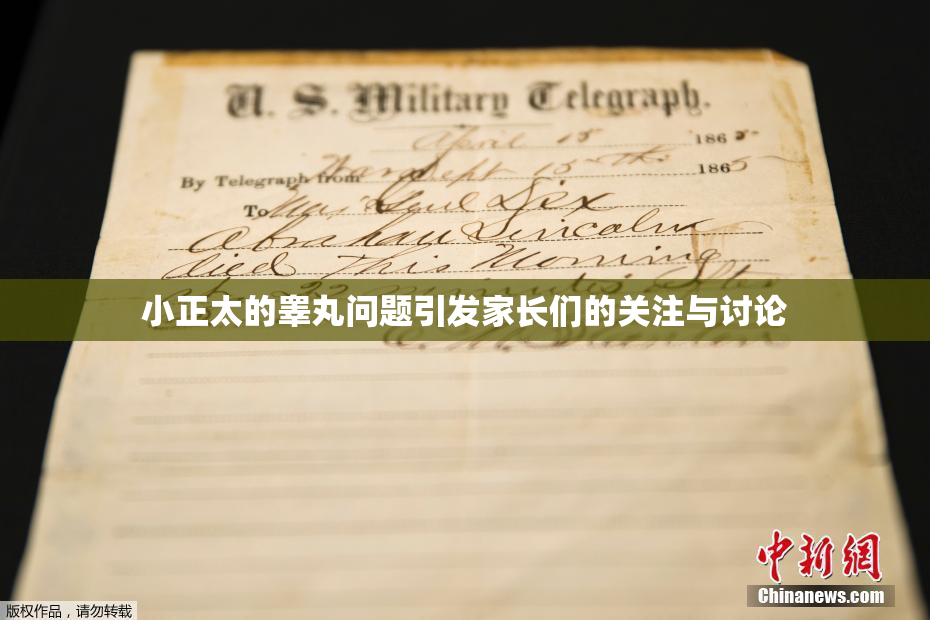 U. S. Military Telegraph.
April 15 1865
By Telegraph from War Dept 15th 1865
To Maj Genl Dix
Abraham Lincoln
died This Morning
at 22 minutes after
小正太的睾丸问题引发家长们的关注与讨论
E. M. Stanton
中新網
Chinanews.com
版权作品，请勿转载